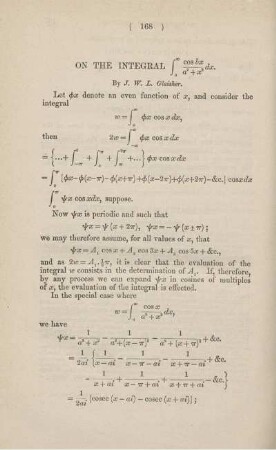 ( 168 )
ON THE INTEGRAL ∫₀^∞ cos bx / (a² + x²) dx.
By J. W. L. Glaisher.
Let φx denote an even function of x, and consider the
integral
w = ∫₀^∞ φx cos x dx,
then 2w = ∫₋∞^∞ φx cos x dx
= {...+ ∫₋π^0 + ∫₀^π + ∫π^2π +...} φx cos x dx
= ∫₀^π [φx−φ(x−π)−φ(x+π)+φ(x−2π)+φ(x+2π)−&c.] cos x dx
∫₀^π ψx cos x dx, suppose.
Now ψx is periodic and such that
ψx = ψ (x + 2π), ψx = − ψ (x ± π);
we may therefore assume, for all values of x, that
ψx = A₁ cos x + A₃ cos 3x + A₅ cos 5x + &c.,
and as 2w = A₁.½π, it is clear that the evaluation of the
integral w consists in the determination of A₁. If, therefore,
by any process we can expand ψx in cosines of multiples
of x, the evaluation of the integral is effected.
In the special case where
w = ∫₀^∞ cos x / (a² + x²) dx,
we have
ψx = 1/(a² + x²) − 1/(a² + (x − π)²) − 1/(a² + (x + π)²) + &c.
= 1/2ai {1/(x − ai) − 1/(x − π − ai) − 1/(x + π − ai) + &c.
− 1/(x + ai) + 1/(x − π + ai) + 1/(x + π + ai) − &c.}
= 1/2ai [cosec (x − ai) − cosec (x + ai)];